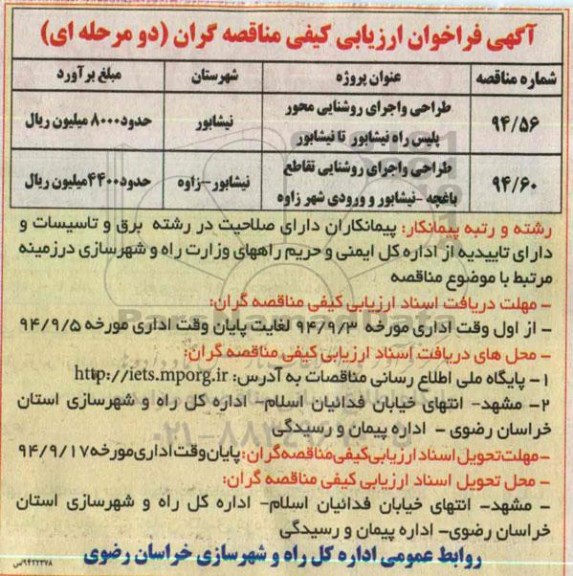 آگهی فراخوان ارزیابی کیفی مناقصه گران (دو مرحله ای)
شماره مناقصه عنوان پروژه شهرستان مبلغ برآورد
۹۴/۵۶ طراحی واجرای روشنایی محور پلیس راه نیشابور تا نیشابور نیشابور حدود۸۰۰۰ میلیون ریال
۹۴/۶۰ طراحی واجرای روشنایی تقاطع باغچه -نیشابور و ورودی شهر زاوه نیشابور-زاوه حدود۴۴۰۰میلیون ریال
رشته و رتبه پیمانکار: پیمانکاران دارای صلاحیت در رشته برق و تاسیسات و
دارای تاییدیه از اداره کل ایمنی و حریم راههای وزارت راه و شهرسازی درزمینه
مرتبط با موضوع مناقصه
- مهلت دریافت اسناد ارزیابی کیفی مناقصه گران:
- از اول وقت اداری مورخه ۹۴/۹/۳ لغایت پایان وقت اداری مورخه ۹۴/۹/۵
- محل های دریافت اسناد ارزیابی کیفی مناقصه گران:
۱- پایگاه ملی اطلاع رسانی مناقصات به آدرس: http://iets.mporg.ir
۲- مشهد- انتهای خیابان فدائیان اسلام- اداره کل راه و شهرسازی استان
خراسان رضوی - اداره پیمان و رسیدگی
-مهلت تحویل اسناد ارزیابی کیفی مناقصه گران: پایان وقت اداری مورخه ۹۴/۹/۱۷
- محل تحویل اسناد ارزیابی کیفی مناقصه گران:
- مشهد- انتهای خیابان فدائیان اسلام- اداره کل راه و شهرسازی استان
خراسان رضوی- اداره پیمان و رسیدگی
روابط عمومی اداره کل راه و شهرسازی خراسان رضوی
۹۴۲۲۳۷۸/س